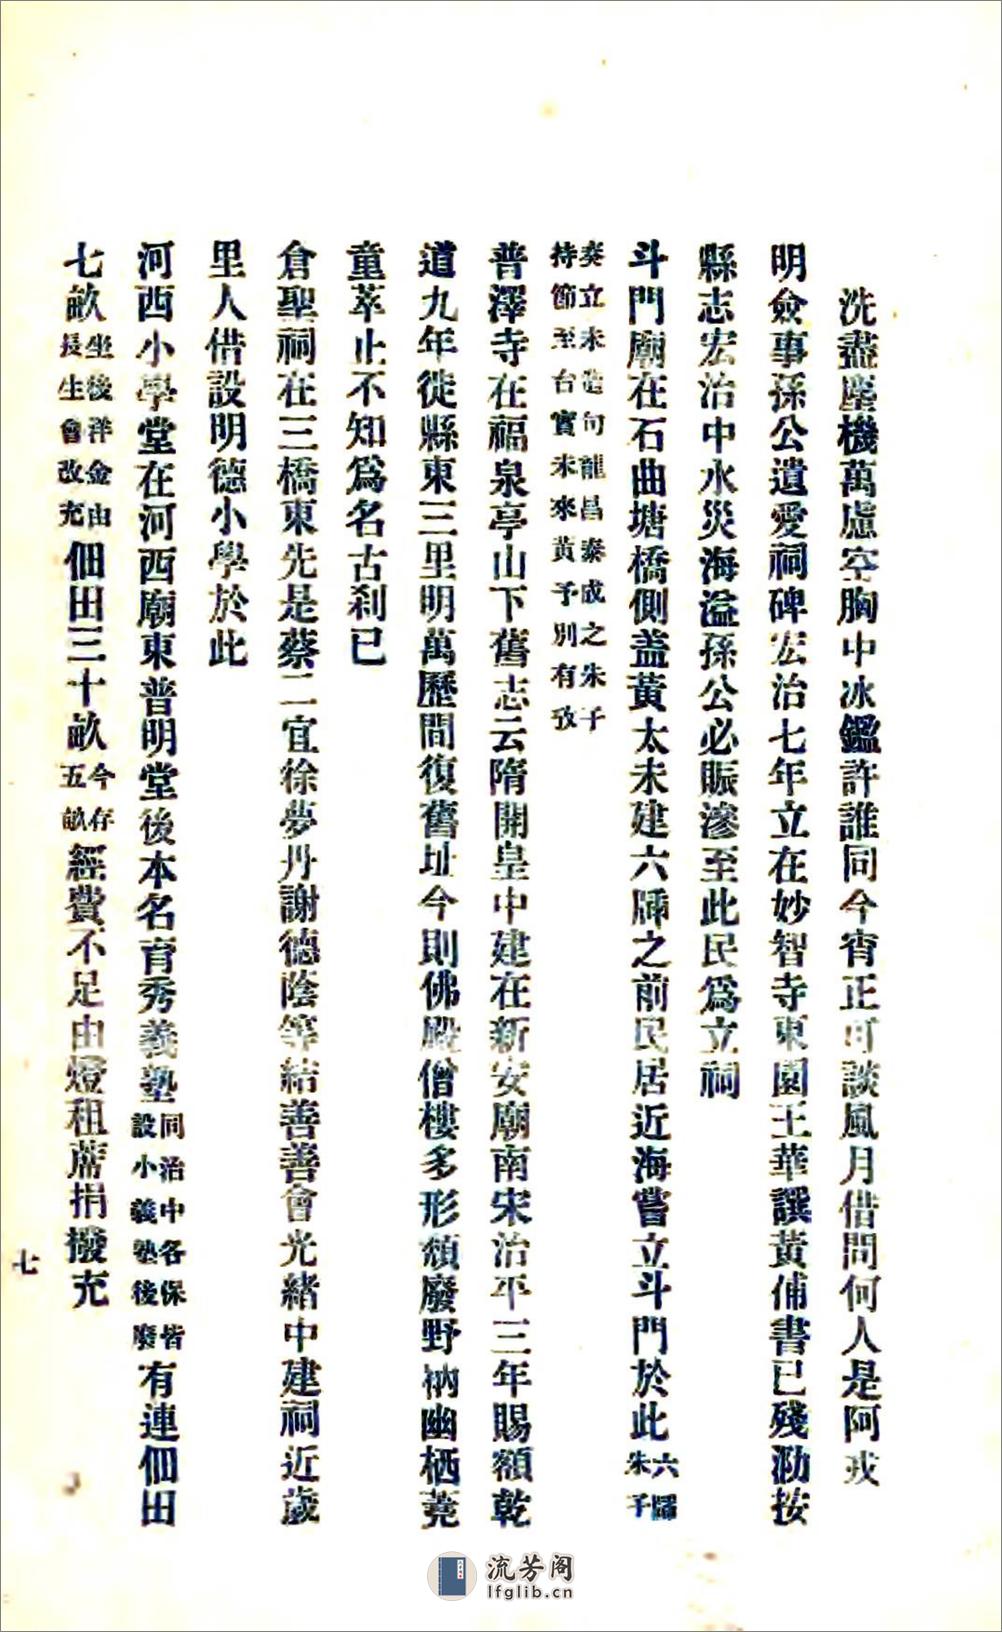 洗盡塵機萬慮空胸中冰鑑許誰同今宵正可談風月借問何人是阿戎
明僉事孫公遺愛祠碑宏治七年立在妙智寺東園王華譔黃俌書已殘泐按
縣志宏治中水災海溢孫公必賑滲至此民爲立祠
斗門廟在石曲塘橋側蓋黃太未建六牐之前民居近海嘗立斗門於此六牐朱子
奏立未造句龍昌泰成之朱子
持節至台實未來黃予別有攷
普澤寺在福泉亭山下舊志云隋開皇中建在新安廟南宋治平三年賜額乾
道九年徙縣東三里明萬歷間復舊址今則佛殿僧樓多形頹廢野衲幽栖蕘
童萃止不知爲名古剎已
倉聖祠在三橋東先是蔡二宜徐夢丹謝德蔭等結善善會光緒中建祠近歲
里人借設明德小學於此
河西小學堂在河西廟東普明堂後本名育秀義塾同治中各保皆設小義塾後廢有連佃田
七畝坐後洋金由長生會改充佃田三十畝今存五畝經費不足由燈租蓆捐撥充
七
流芳阁
lfglib.cn